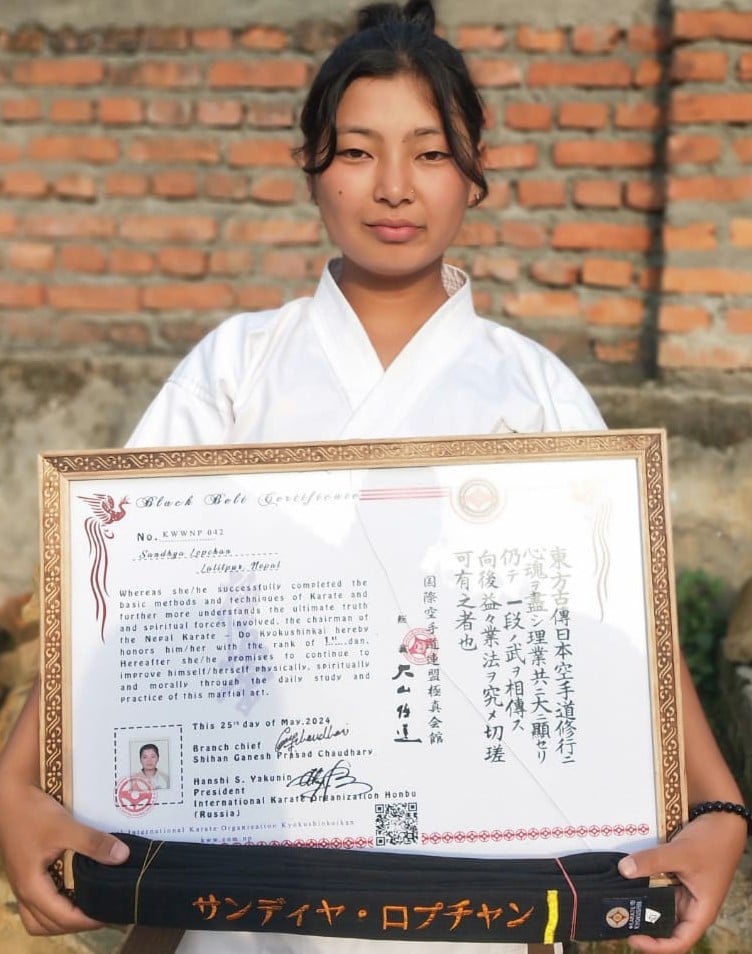 Black Belt Certificate
No. KWWNP 042
Sandhya Lopchan
Lalitpur, Nepal
Whereas she/he successfully completed the
basic methods and techniques of Karate and
further more understands the ultimate truth
and spiritual forces involved, the chairman of
the Nepal Karate – Do Kyokushinkai hereby
honors him/her with the rank of 1st dan.
Hereafter she/he promises to continue to
improve himself/herself physically, spiritually
and morally through the daily study and
practice of this martial art.
This 25th day of May, 2024
Branch chief
Shihan Ganesh Prasad Chaudhary
Hanshi S. Yakunin
President
International Karate Organization Honbu
(Russia)
International Karate Organization Kyokushinkaikan
東方古傳日本空手道修行ニ
心魂ヲ盡シ理業共ニ大ニ顯セリ
仍テ 一段ノ武ヲ相傳ス
向後益々業法ヲ究メ切瑳
可有之者也
国際空手道連盟極真会館
総裁 大山倍達
サンディヤ・ロプチャン